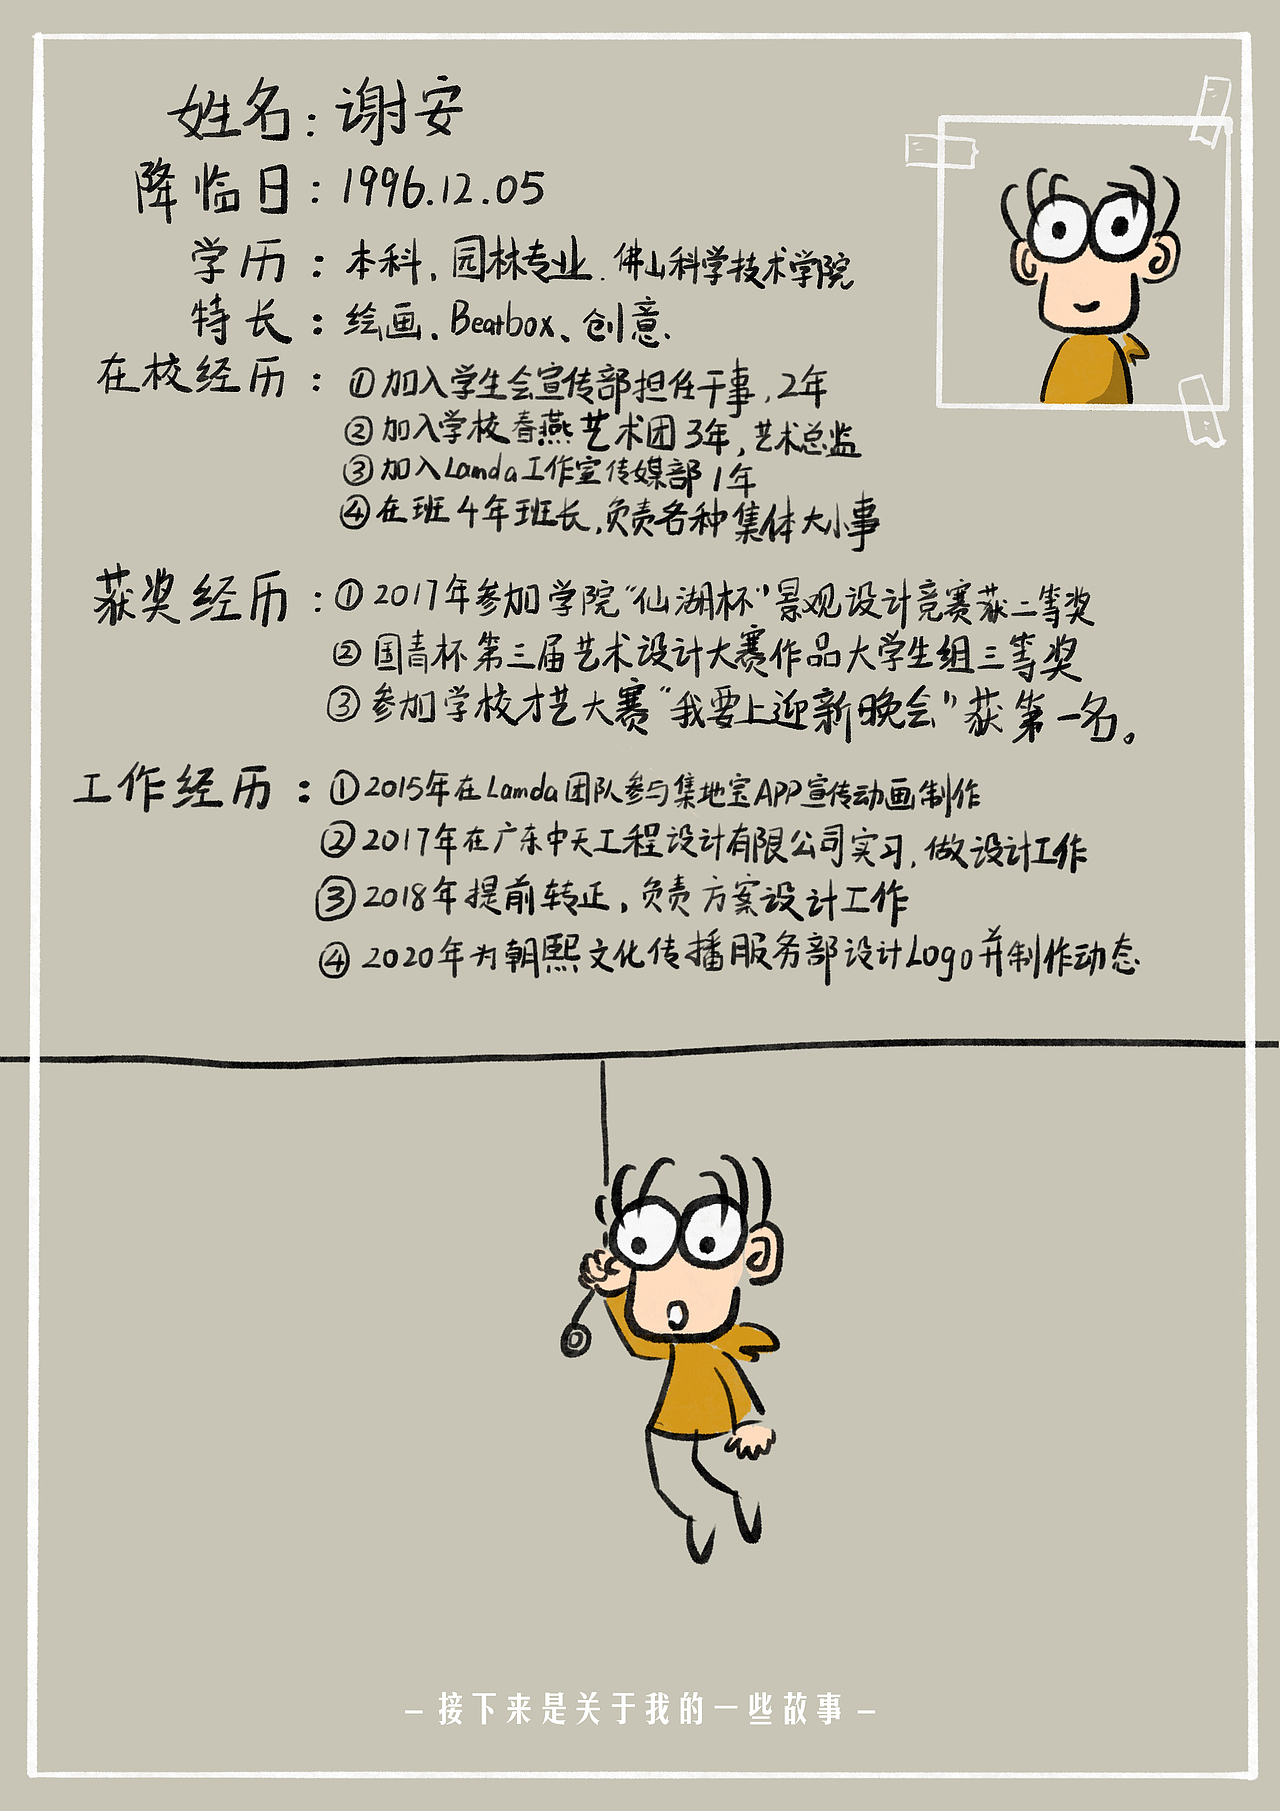 姓名：谢安
降临日：1996.12.05
学历：本科、园林专业、佛山科学技术学院
特长：绘画、Beatbox、创意.
在校经历：①加入学生会宣传部担任干事，2年
②加入学校春燕艺术团3年，艺术总监
③加入Lamda工作室传媒部1年
④在班4年班长，负责各种集体大小事
获奖经历：①2017年参加学院“仙湖杯”景观设计竞赛获二等奖
②国青杯第三届艺术设计大赛作品大学生组三等奖
③参加学校才艺大赛“我要上迎新晚会”获第一名。
工作经历：①2015年在Lamda团队参与集地宝APP宣传动画制作
②2017年在广东中天工程设计有限公司实习，做设计工作
③2018年提前转正，负责方案设计工作
④2020年为朝熙文化传播服务部设计Logo并制作动态
– 接下来是关于我的一些故事 –